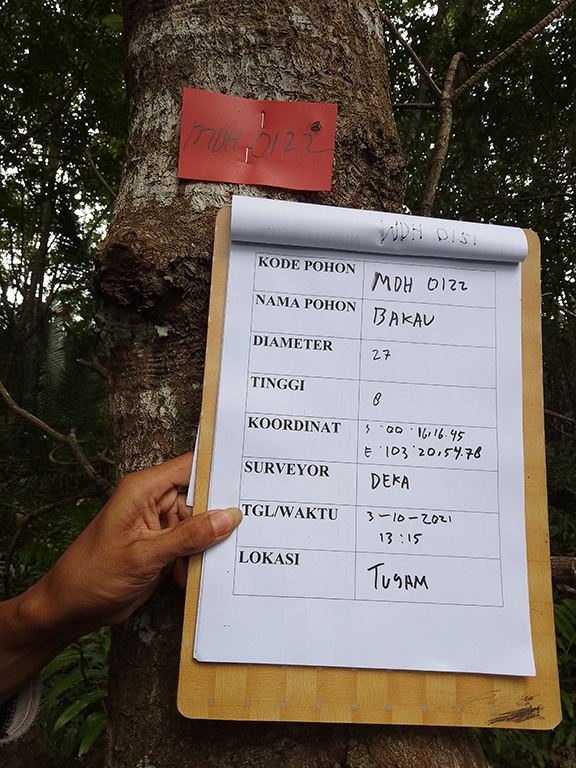 MDH 0122
KODE POHON MDH 0122
NAMA POHON BAKAU
DIAMETER 27
TINGGI 8
KOORDINAT S . 00 . 16,16.45
E . 103 . 20,54.78
SURVEYOR DEKA
TGL/WAKTU 3-10-2021
13:15
LOKASI TUGAM